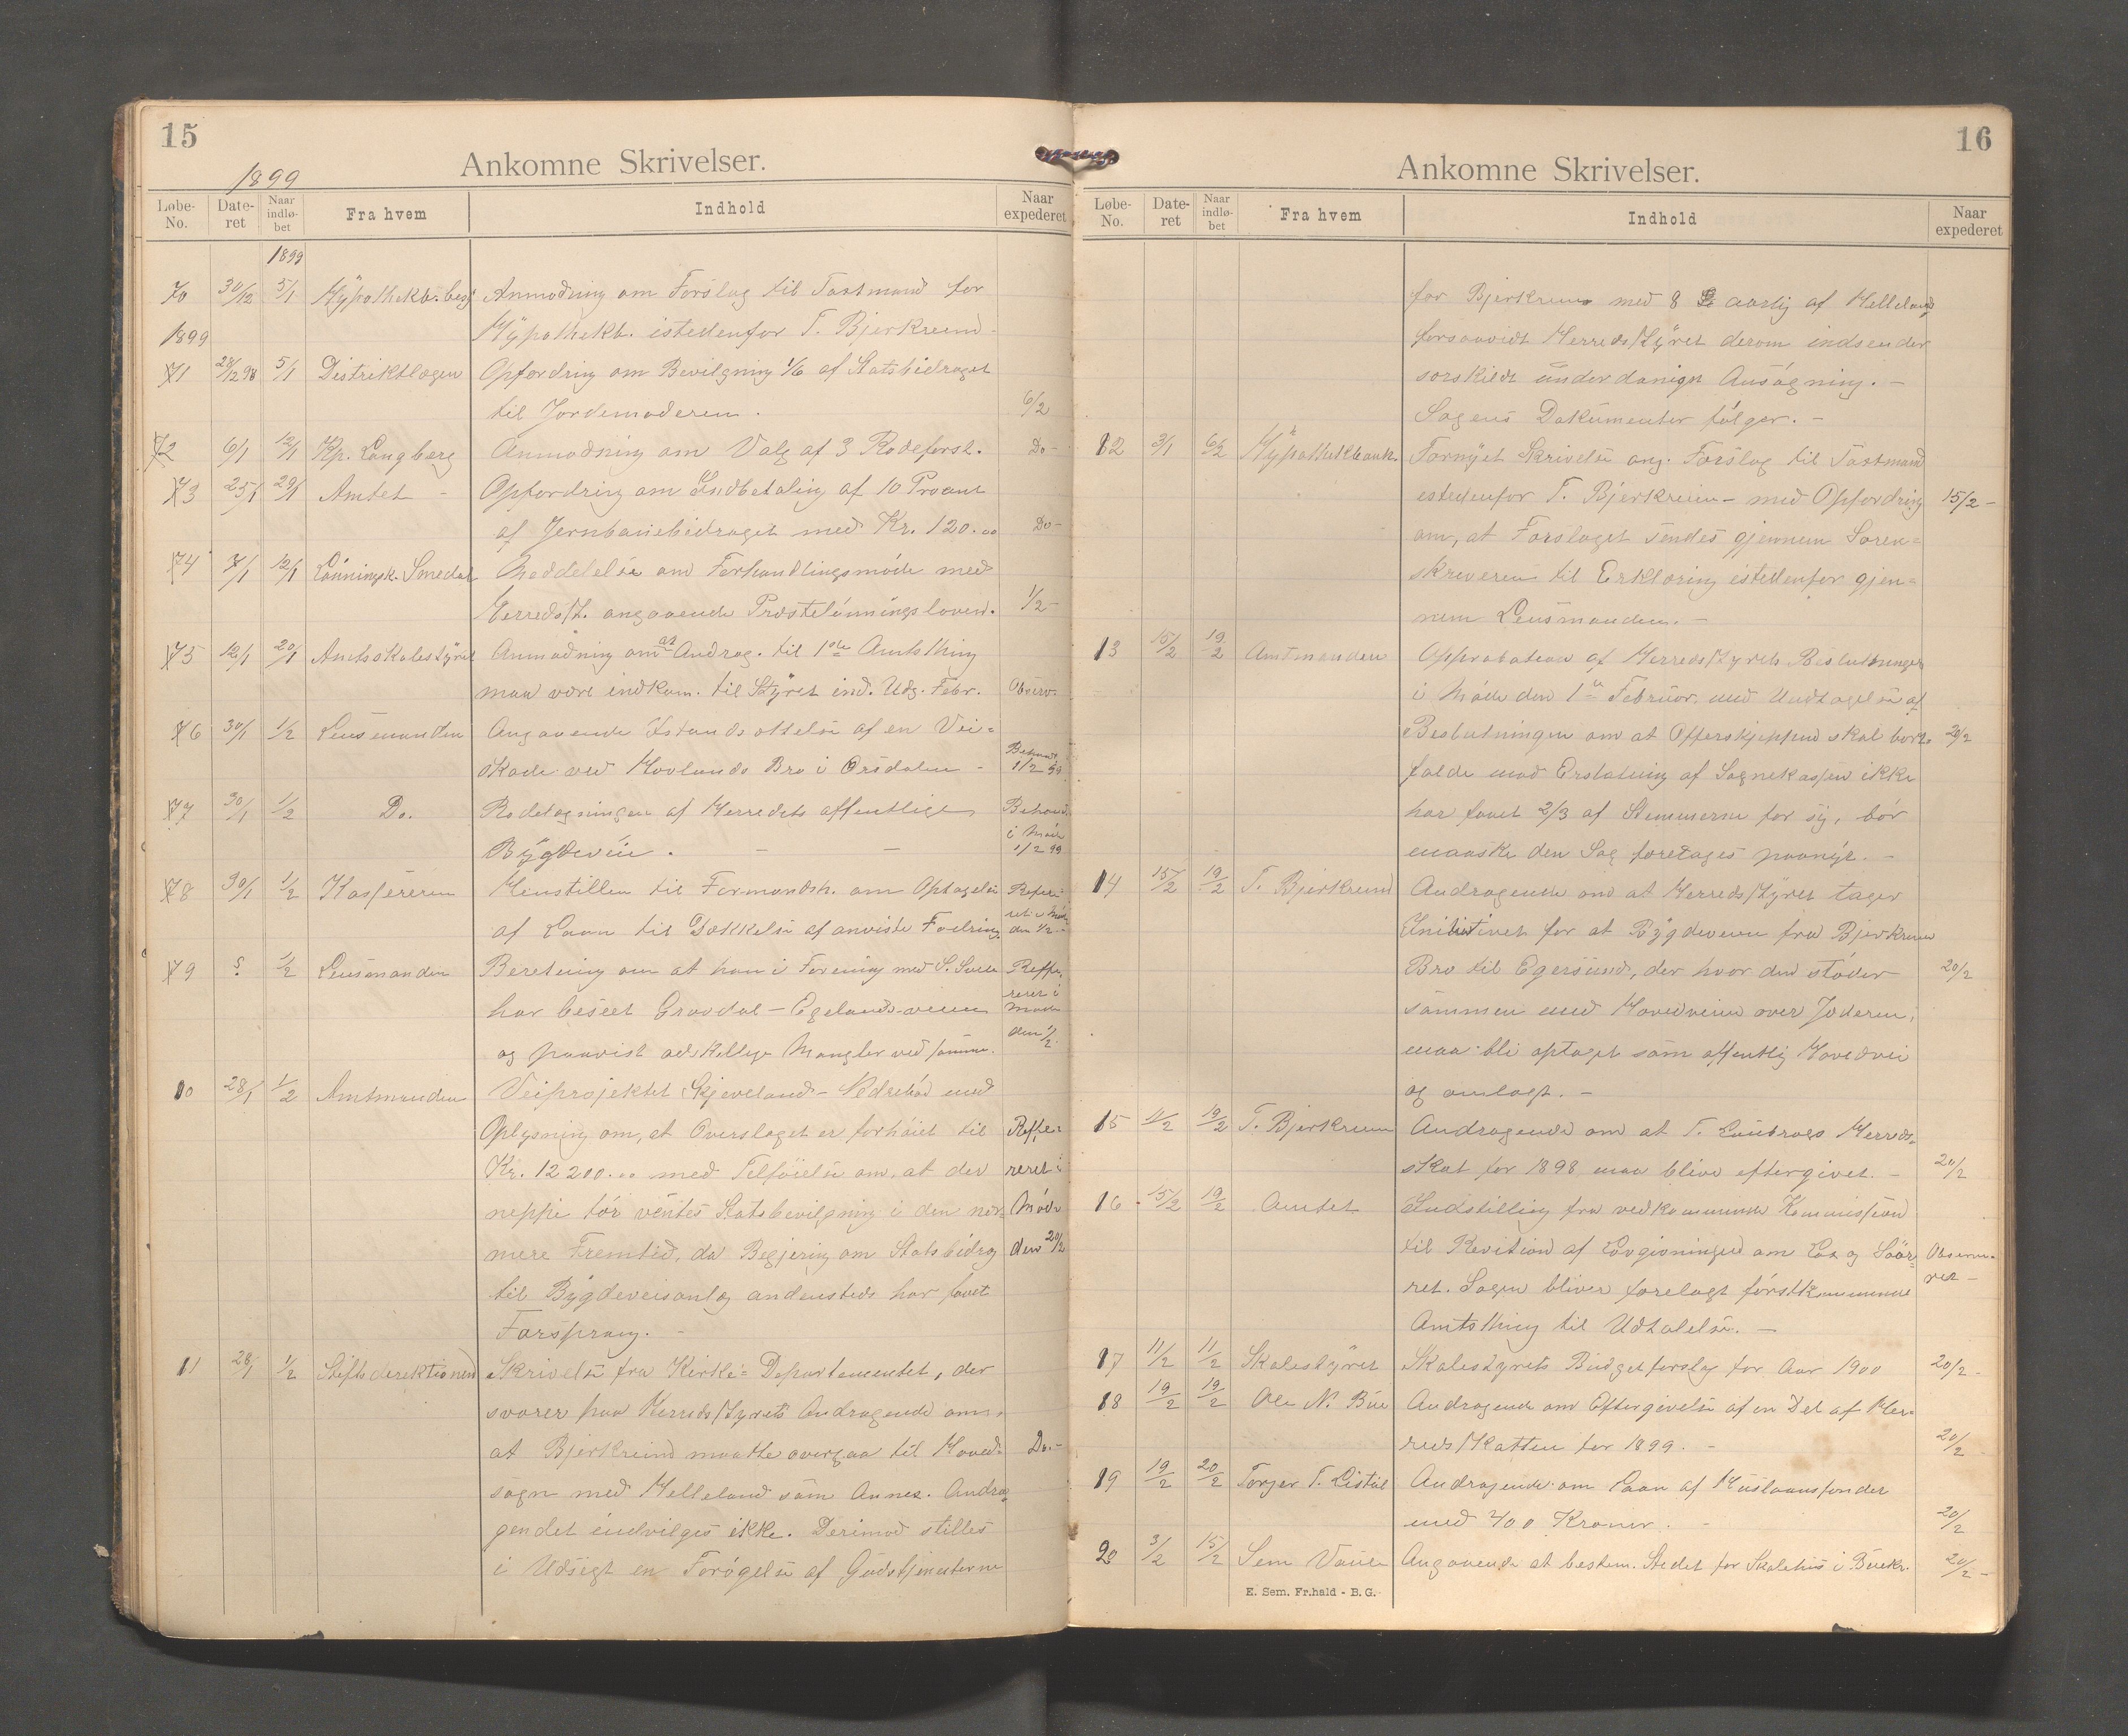 15
1899
Ankomne Skrivelser.
Løbe-No. Date-ret Naar indlø-bet Fra hvem Indhold Naar expederet
1899
70 30/12 5/1 Hÿpothekb. besj Anmodning om Forslag til Tastmand for
1899 Hÿpothekb. istedenfor T. Bjerkreim -
71 28/12 98 5/1 Distriktlægen Opfordring om Bevilgning 1/6 af Statsbidraget
til Jordemoderen. 6/2
72 6/1 12/1 Kp. Langberg Anmodning om Valg af 3 Rodeforst. Do -
73 25/1 29/1 Amtet - Opfordring om Indbetaling af 10 Procent
af Jernbanebidraget med Kr. 120.00 Do -
74 7/1 12/1 Lønningsk. Smedal Meddelelse om Forhandlingsmøde med
Herredsst. angaaende Præstelønningsloven. 1/2 -
75 12/1 20/1 Amtsskolestÿret Anmodning om at Andrag. til 1ste Amtsthing
maa være indkom. til Stÿret ind. Udg. Febr. Observ.
76 30/1 1/2 Lensmanden Angaaende Istandsættelse af en Vei-
skade ved Hovlands Bro i Ørsdalen - Behandl. 1/2 99
77 30/1 1/2 Do. Rodelægningen af Herredets offentlige Behand.
Bÿgdeveie. - - i Møde 1/2 99
78 30/1 1/2 Kassereren Henstillen til Formandsk. om Optagelse Refere-
af Laan til Dækkelse af anviste Fodring. ret i Møde den 1/2 -
79 ? 1/2 Lensmanden Beretning om at han i Forening med S. Refe-
har beseet Gravdal - Egelands-veien reret i Møde
og paavist adskillige Mangler ved samme. den 1/2.
10 28/1 1/2 Amtmanden Veiprojektet Skjeveland - Nedrebø med
Oplysning om, at Overslaget er forhøiet til Refe-
Kr. 12200.00 med Tilføielse om, at der reret i
neppe tør ventes Statsbevilgning i den nær- Møde
mere Fremtid, da Begjering om Statsbidrag den 20/2
til Bÿgdeveisanlæg andensteds har faaet
Forsprang. -
11 28/1 1/2 Stiftsdirektionen Skrivelse fra Kirke- Departementet, der
svarer paa Herredsstyrets Andragende om,
at Bjerkreim maatte overgaa til Hoved- Do. -
sogn med Helleland som Annex. Andra-
gendet indvilges ikke. Derimod stilles
i Udsigt en Forøgelse af Gudstjenesterne
16
Ankomne Skrivelser.
Løbe-No. Date-ret Naar indlø-bet Fra hvem Indhold Naar expederet
for Bjerkreim med 8 aarlig af Helleland
forsaavidt Herredsstÿret derom indsender
særskildt underdanigst Ansøgning. -
Sagens Dokumenter følger. -
12 3/1 6/2 Hÿpothekbank. Fornÿet Skrivelse ang. Forslag til Tastmand
istedenfor T. Bjerkreim - med Opfordring 15/2 -
om, at Forslaget sendes gjennem Soren-
skriveren til Erklæring istedenfor gjen-
nem Lensmanden. -
13 15/2 19/2 Amtmanden Approbation af Herredsstyrets Beslutninger
i Møde den 1ste Februar, med Undtagelse af
Beslutningen om at Offerskjeppen skal bort- 20/2
falde mod Erstatning af Sognekassen ikke
har faaet 2/3 af Stemmerne for sig, bør
maaske den Sag foretages paanÿt. -
14 15/2 19/2 T. Bjerkreim Andragende om at Herredsstÿret tager
Initiativet for at Bÿgdeveien fra Bjerkreim
Bro til Egersund, der hvor den støder 20/2
sammen med Hovedveien over Jæderen,
maa bli optaget som offentlig Hovedvei
og omlagt. -
15 11/2 19/2 T. Bjerkreim Andragende om at T. Herreds-
skat for 1898 maa blive eftergivet. - 20/2
16 - 15/2 19/2 Amtet Indstilling fra vedkommende Kommission
til Revition af Lovgivningen om Lax og Søør- Observe-
ret. Sagen bliver forelagt førstkommende ret -
Amtsthing til Udtalelse. -
17 11/2 11/2 Skolestÿret Skolestyrets Budgetforslag for Aar 1900 20/2 -
18 19/2 19/2 Ole N. Bue Andragende om Eftergivelse af en Del af Her-
redsskatten for 1899. - 20/2
19 19/2 20/2 Torger T. Andragende om Laan af Huslaansfondet
med 400 Kroner. - 20/2
20 3/2 15/2 Sem Angaaende at bestem. Stedet for Skolehus i 20/2 -
E. Sem. Fr.hald - B. G.